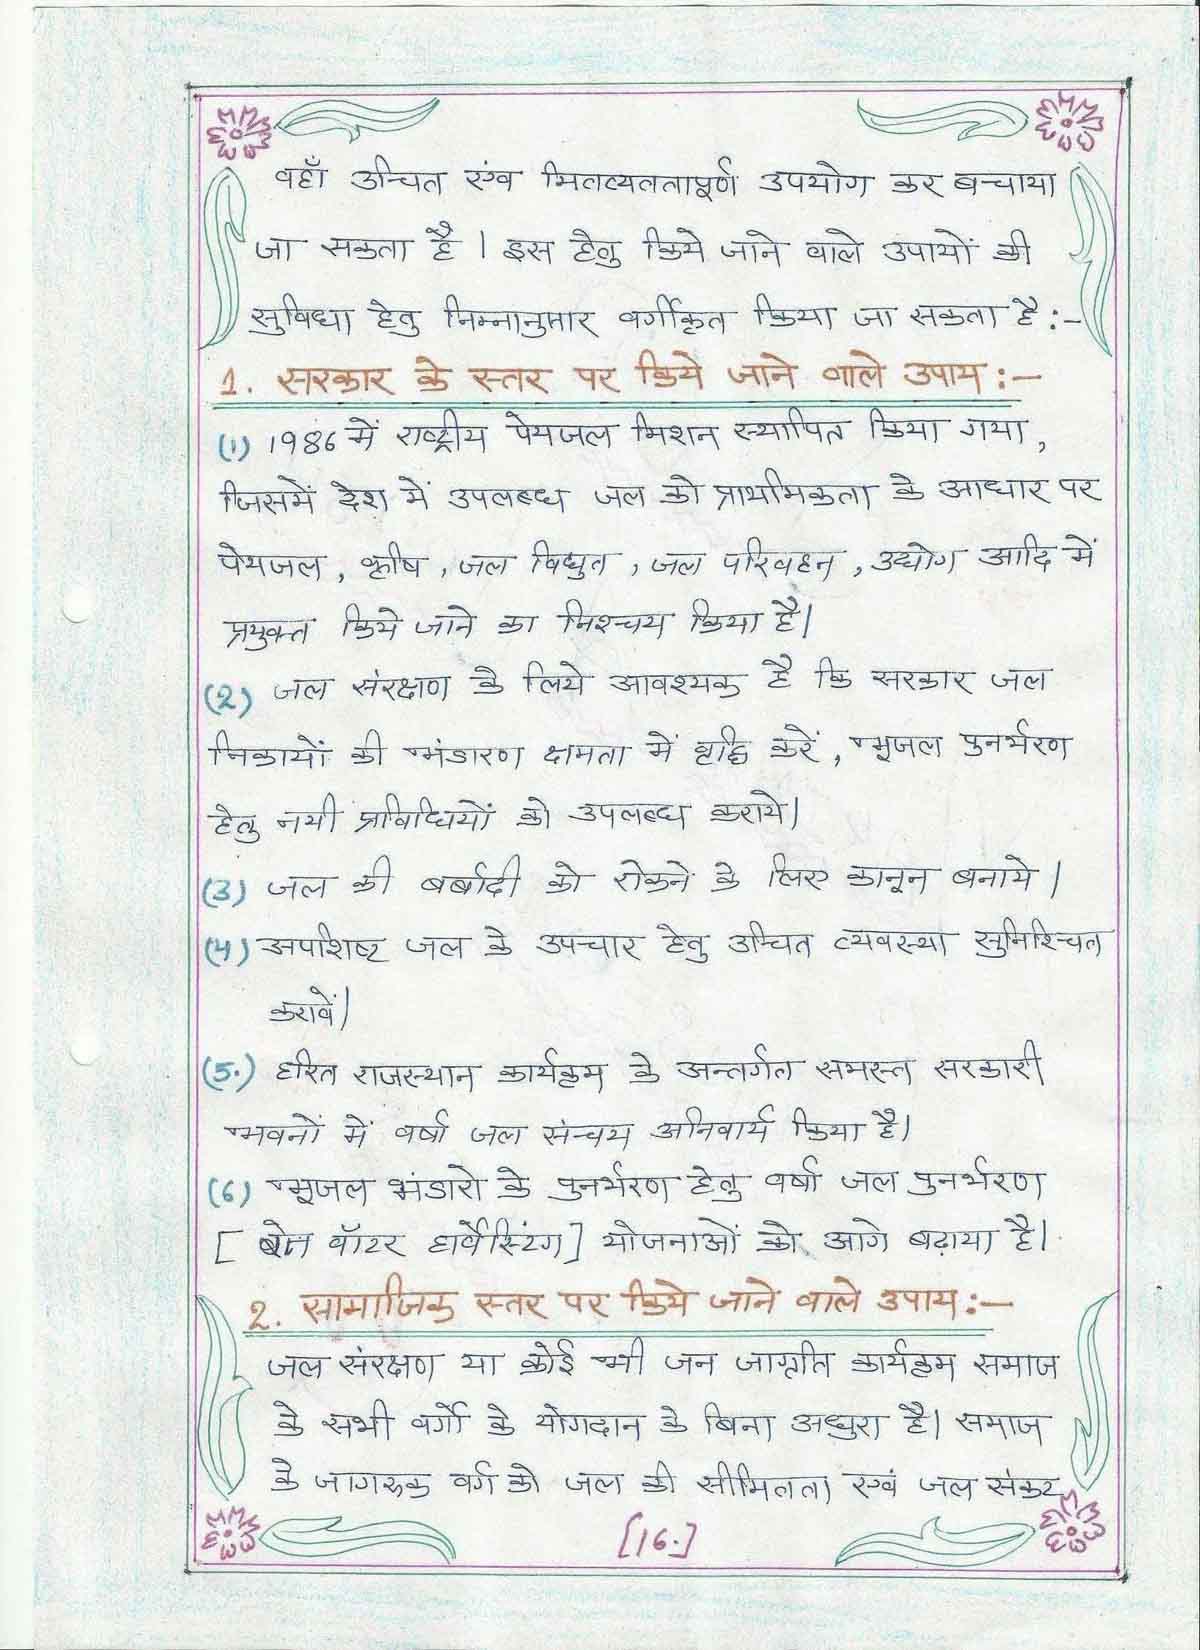 वहाँ उचित एंव मितव्यततापूर्ण उपयोग कर बचाया
जा सकता है । इस हेतु किये जाने वाले उपायों की
सुविधा हेतु निम्नानुसार वर्गीकृत किया जा सकता है :-
1. सरकार के स्तर पर किये जाने वाले उपाय :-
(1) 1986 में राष्ट्रीय पेयजल मिशन स्थापित किया गया,
जिसमें देश में उपलब्ध जल को प्राथमिकता के आधार पर
पेयजल, कृषि, जल विद्युत, जल परिवहन, उद्योग आदि में
प्रयुक्त किये जाने का निश्चय किया है।
(2) जल संरक्षण के लिये आवश्यक है कि सरकार जल
निकायों की भंडारण क्षमता में वृद्धि करें, भूजल पुनर्भरण
हेतु नयी प्रविधियों को उपलब्ध कराये।
(3) जल की बर्बादी को रोकने के लिए कानून बनाये।
(4) अपशिष्ट जल के उपचार हेतु उचित व्यवस्था सुनिश्चित
करावें।
(5.) हरित राजस्थान कार्यक्रम के अन्तर्गत समस्त सरकारी
भवनों में वर्षा जल संचय अनिवार्य किया है।
(6) भूजल भंडारो के पुनर्भरण हेतु वर्षा जल पुनर्भरण
[ वॉटर हार्वेस्टिंग] योजनाओं को आगे बढ़ाया है।
2. सामाजिक स्तर पर किये जाने वाले उपाय :-
जल संरक्षण या कोई भी जन जागृति कार्यक्रम समाज
के सभी वर्गो के योगदान के बिना अधुरा है। समाज
के जागरुक वर्ग को जल की सीमितता एवं जल संकट
[16.]